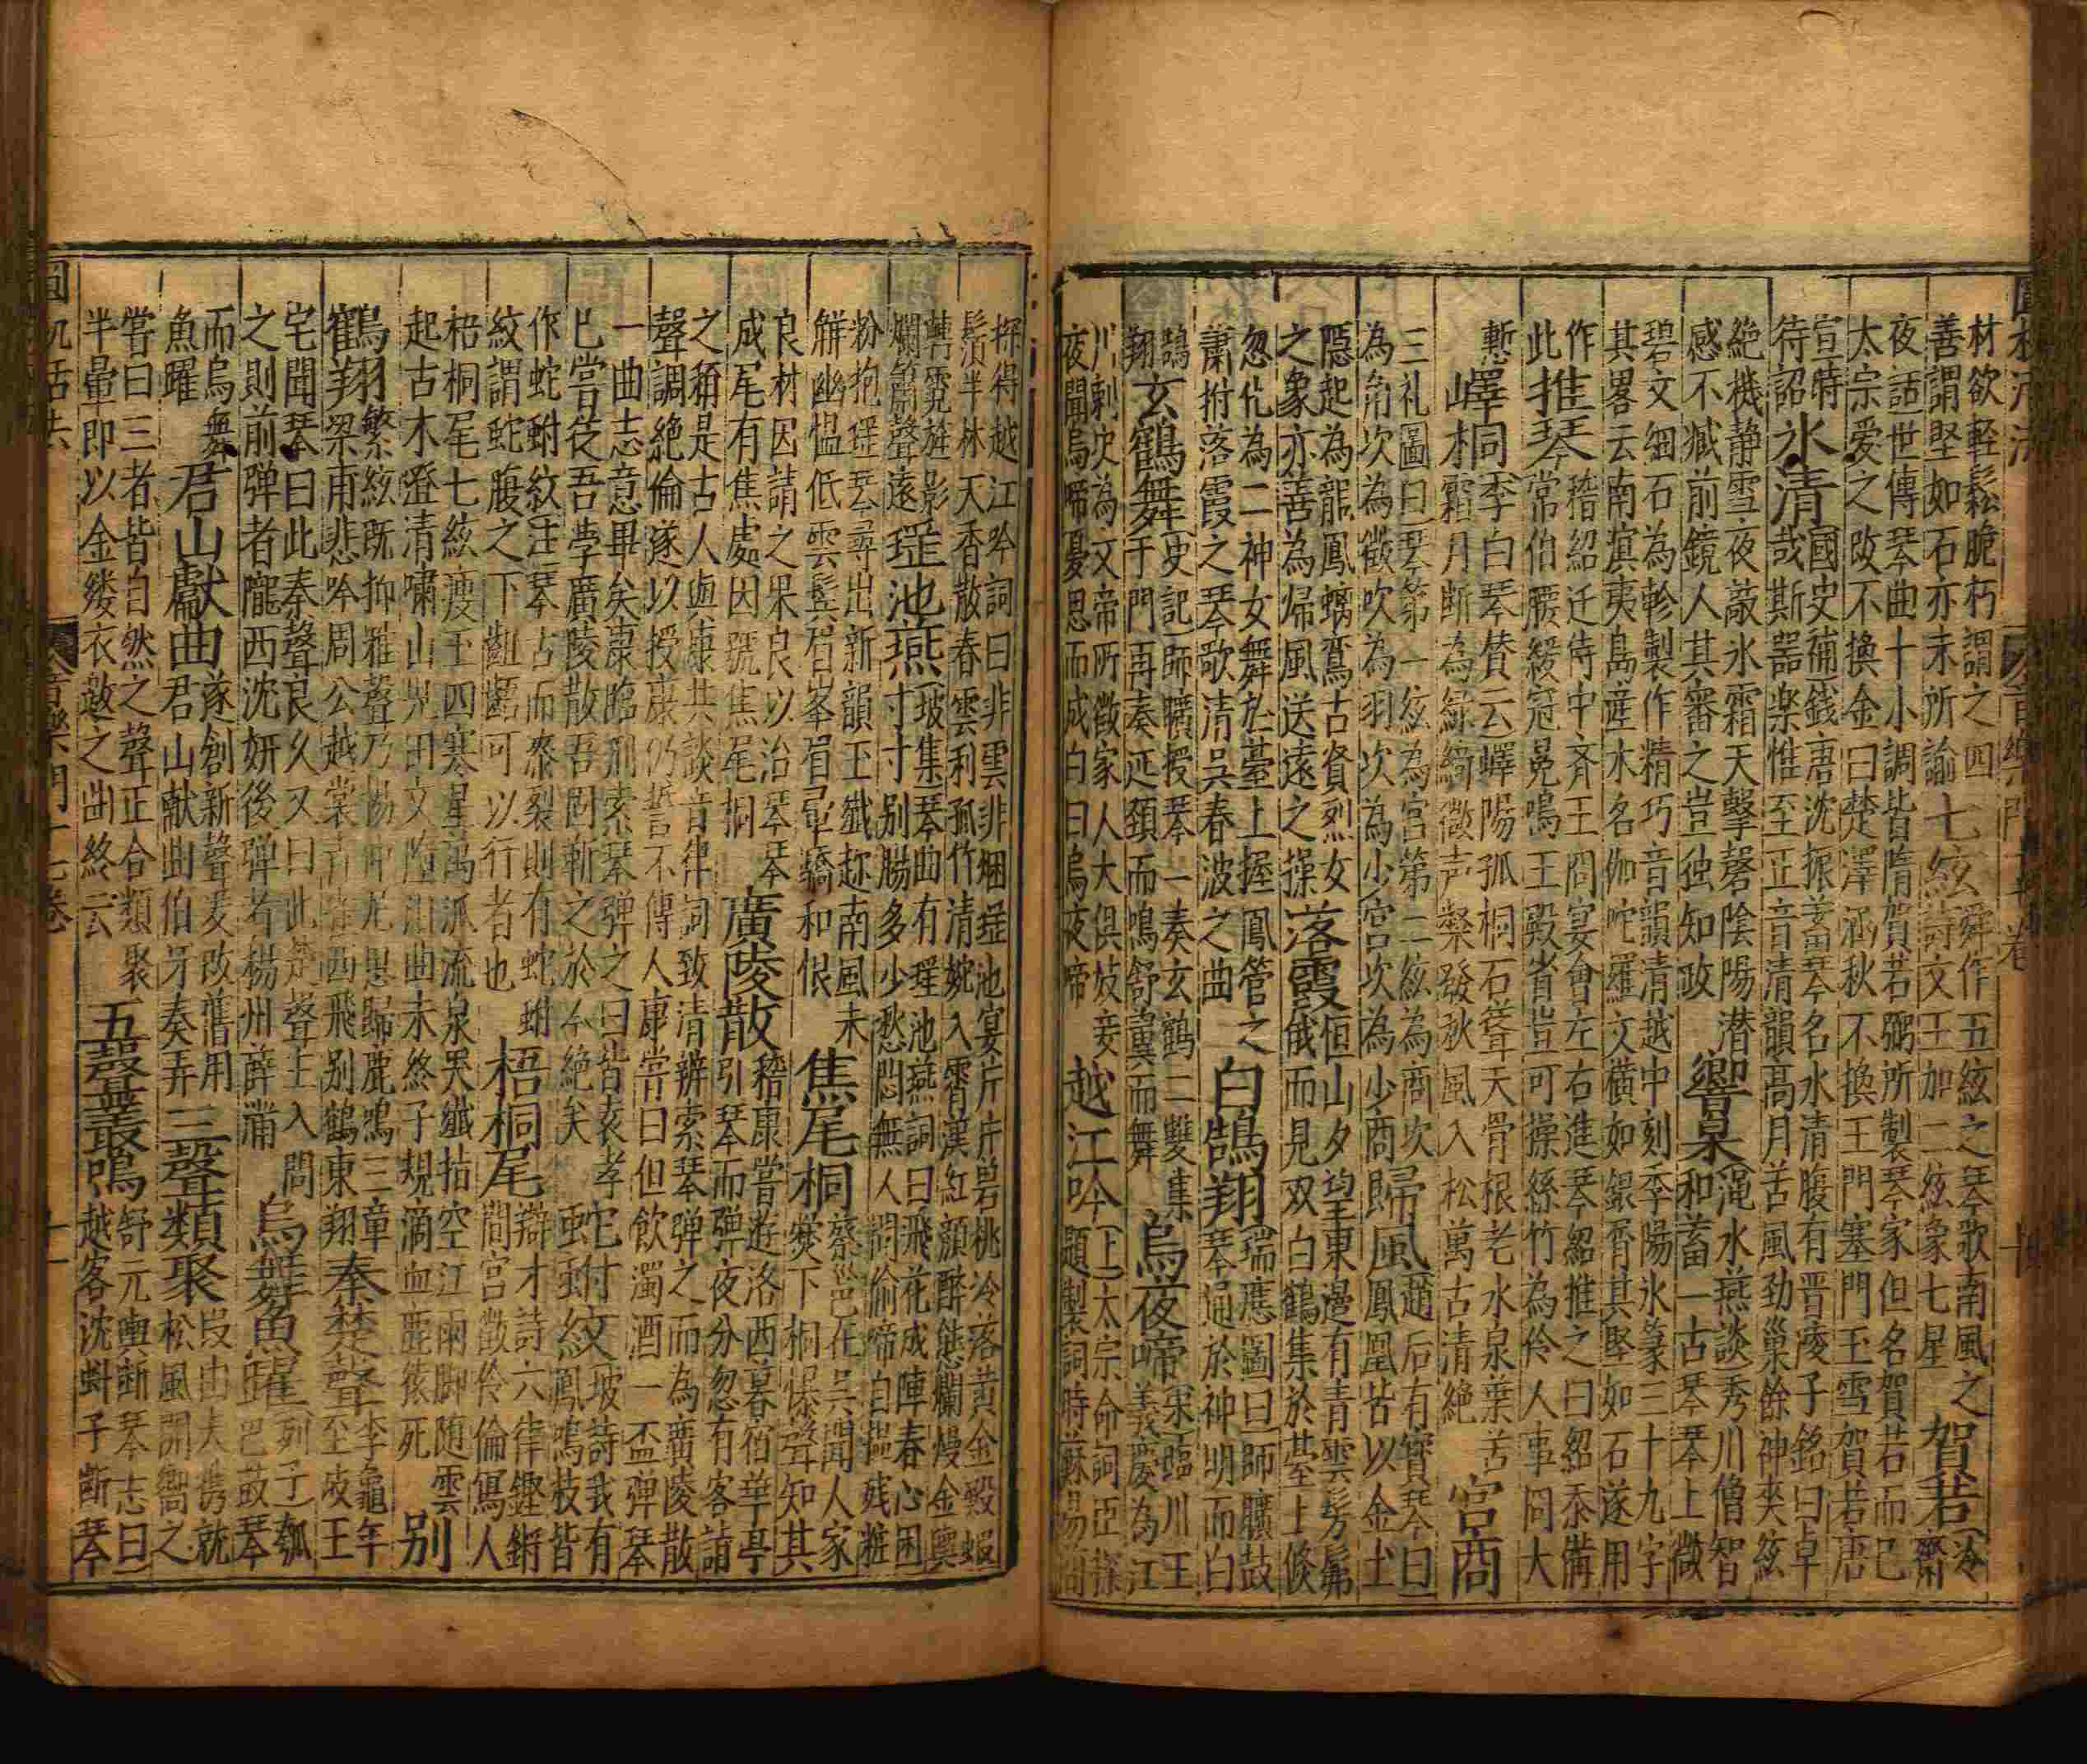 材欲軽鬆脆朽謂之四
善謂堅如石亦未所諭
七絃
舜作五絃之琴歌南風之
詩文王加二絃象七星
賀若
冷
齋
夜話世傳琴曲十小調皆隋賀若弼所製琴家但名賀若而已
太宗爱之改不換金曰楚澤涵秋不換王門塞門玉雪賀若唐
宣
待詔
氷清
國史補錢唐沈振蓄琴名水清腹有晋陵子銘曰卓
哉斯噐楽惟至正音清韻高月苦風勁巢餘神夾絃
絶機静雪夜敲氷霜天擊磬陰陽潜
感不臧前鏡人其審之豈独知政
響泉
和蓄一古琴琴上徽
碧文细石為軫製作精巧音韻清越中刻季陽氷篆三十九字
其畧云南溟夷島産木名伽陀羅文橫如銀屑其堅如石遂用
作
此
推琴
稽紹迁侍中斉王冏宴會左右進琴紹推之曰紹忝備
常伯腰緩冠冕鳴王殿省豈可操絲竹為伶人事冏大
慙
嶧桐
李白琴賛云嶧陽孤桐石聳天骨根老水泉葉苦
霜月断為綠綺徽声粲發秋風入松萬古清絶
宮商
三礼圖曰琴第一絃為宮第二絃為商次
為角次為徵次為羽次為少宮次為少商
歸風
趙后有寳琴曰
鳳凰苦以金土
隠起為龍鳳螭鸞古賢烈女
之象亦善為帰風送遠之操
落霞
恒山夕望東邊有青雲髣髴
俄而見双白鶴集於䑓上倐
忽化為二神女舞於䑓上握鳳管之
蕭拊落霞之琴歌清吳春波之曲
白鵠翔
瑞應圖曰師曠鼓
琴通於神明而白
鵠
翔
玄鶴舞
史記師曠授琴一奏玄鶴二雙集
于門再奏延頚而鳴舒翼而舞
烏夜啼
宋臨川王
義慶為江
川刺史為文帝所徵家人大俱妓妾
夜聞烏啼憂思而成白曰烏夜啼
越江吟
上太宗命詞臣探
題製詞時蘇易簡
探得越江吟詞曰非雲非烟瑶池宴片片碧桃冷落黄金殿蝦
鬚半林天香散春雲利孤竹清婉入霄漢紅顔醉態爛熳金輿
轉霓旌影
爛簫聲遠
瑶池燕
坡集琴曲有瑶池燕詞曰飛花成陣春心困
寸寸别膓多少愁悶無人問偷啼自揾残粧
粉抱瑶琴尋出新韻玉纎趂南風未
觧幽愠低雲鬂眉峯眉暈驕和恨
焦尾桐
蔡邕在吳聞人家
㸑下桐爆聲知其
良材因請之果良以治琴琴
成尾有焦處因號焦尾桐
廣陵散
稽康嘗遊洛西暮宿華亭
引琴而彈夜分忽有客請
之稱是古人與康共談音律詞致清辨索琴彈之而為廣陵散
聲調絶倫遂以授康仍誓不傳人康嘗曰但飲濁酒一盃弹琴
一曲志意畢矣康臨刑索琴弹之曰昔袁孝
已嘗从吾學廣陵散吾固靳之於今絶矣
蛇蚹紋
坡詩我有
鳳鳴枝皆
作蛇蚹紋注琴古而漆裂則有蛇蚹
紋謂蛇腹之下齟齬可以行者也
梧桐尾
辯才詩六律鏗鏘
間宮徴伶倫寫人
梧桐尾七絃瘦玉四寒星萬派流泉哭纎拈空江雨脚随雲
起古木澄清嘯山鬼田文隆泪曲未終子規滴血鹿猿死
别
鶴翔
繁絃既抑雅聲乃揚仰尾思歸鹿鳴三章
梁甫悲吟周公越裳青雀西飛别鶴東翔
秦楚聲
李龜年
至岐王
宅聞琴曰此秦聲良久又曰此楚聲主入問
之則前弹者隴西沈妍後弹者楊州薛滿
烏舞魚躍
列子瓠
巴鼓琴
而烏舞
魚躍
君山獻曲
遂創新聲変改舊用
君山献曲伯牙奏弄
三聲類聚
叚由夫携就
松風閒嚮之
嘗曰三者皆自然之聲正合類聚
半暈即以金缕衣敲之曲終云
五聲叢鳴
舒元輿断琴志曰
越客沈虯子断琴